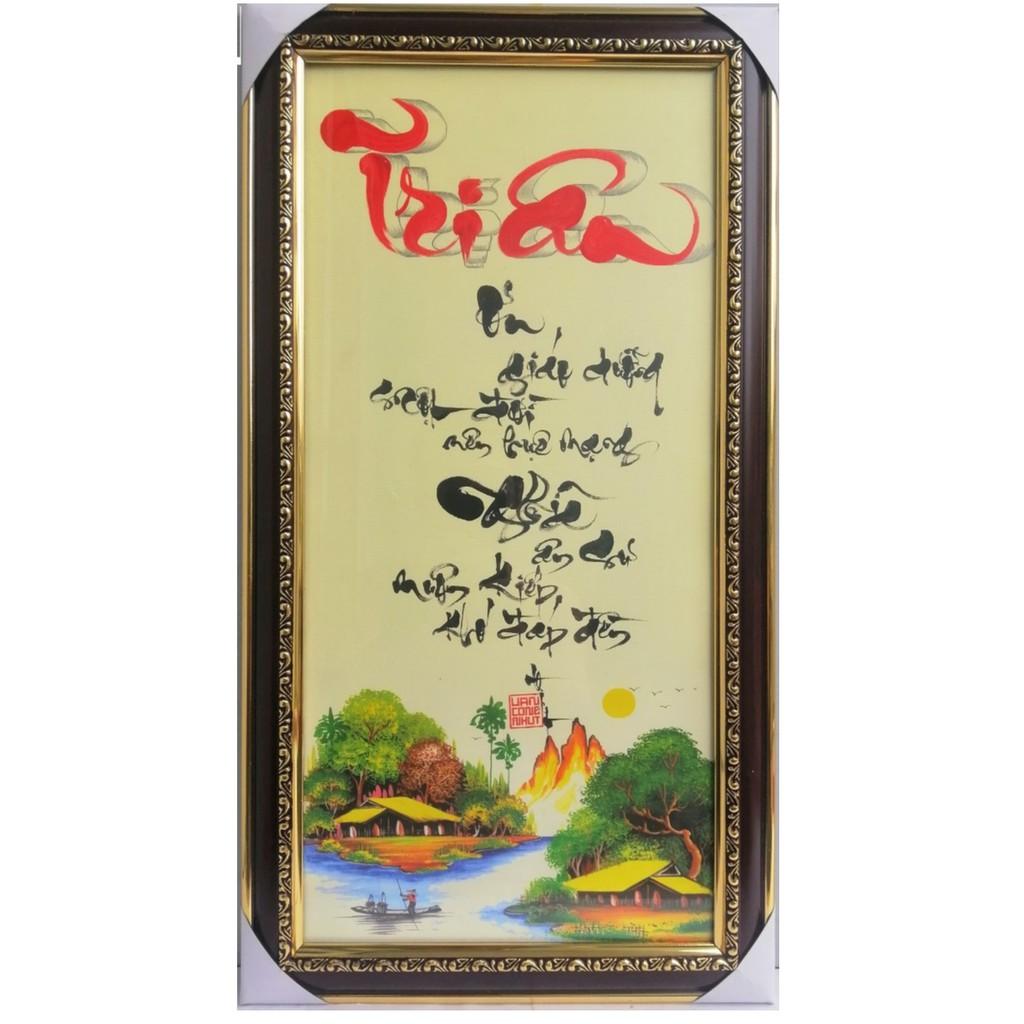 Tri ân
Ơn
giáo dưỡng
một đời
nên huệ mạng
Nghĩa
ân sư
muôn kiếp,
khó đáp đền
VAN
CONG
NHUT